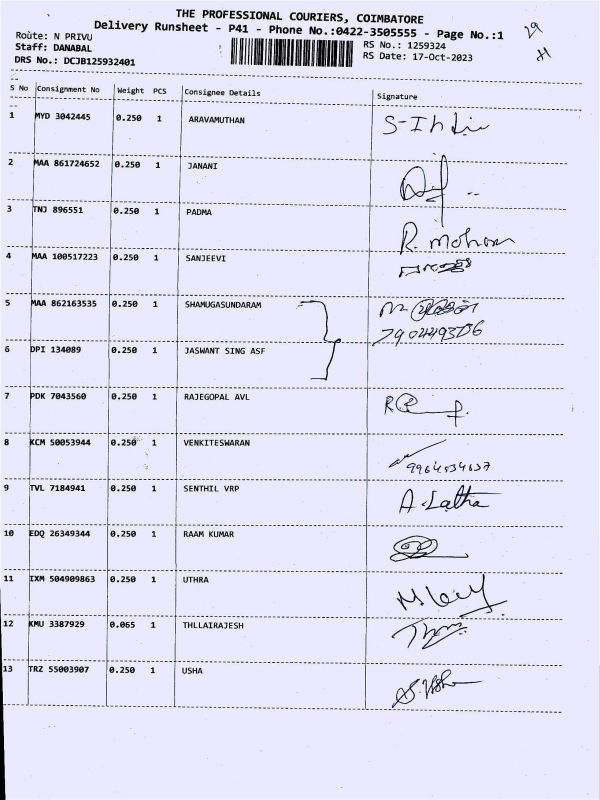 THE PROFESSIONAL COURIERS, COIMBATORE
Delivery Runsheet - P41 - Phone No.:0422-3505555 - Page No.:1
29
Route: N PRIVU
RS No.: 1259324
Staff: DANABAL
RS Date: 17-Oct-2023
DRS No.: DCJB125932401
S No Consignment No Weight PCS Consignee Details Signature
1 MYD 3042445 0.250 1 ARAVAMUTHAN
2 MAA 861724652 0.250 1 JANANI
3 TNJ 896551 0.250 1 PADMA R. mohan
4 MAA 100517223 0.250 1 SANJEEVI
5 MAA 862163535 0.250 1 SHAMUGASUNDARAM
6 DPI 134089 0.250 1 JASWANT SING ASF
7 PDK 7043560 0.250 1 RAJEGOPAL AVL
8 KCM 50053944 0.250 1 VENKITESWARAN
9 TVL 7184941 0.250 1 SENTHIL VRP A. Latha
10 EDQ 26349344 0.250 1 RAAM KUMAR
11 IXM 504909863 0.250 1 UTHRA
12 KMU 3387929 0.065 1 THLLAIRAJESH
13 TRZ 55003907 0.250 1 USHA